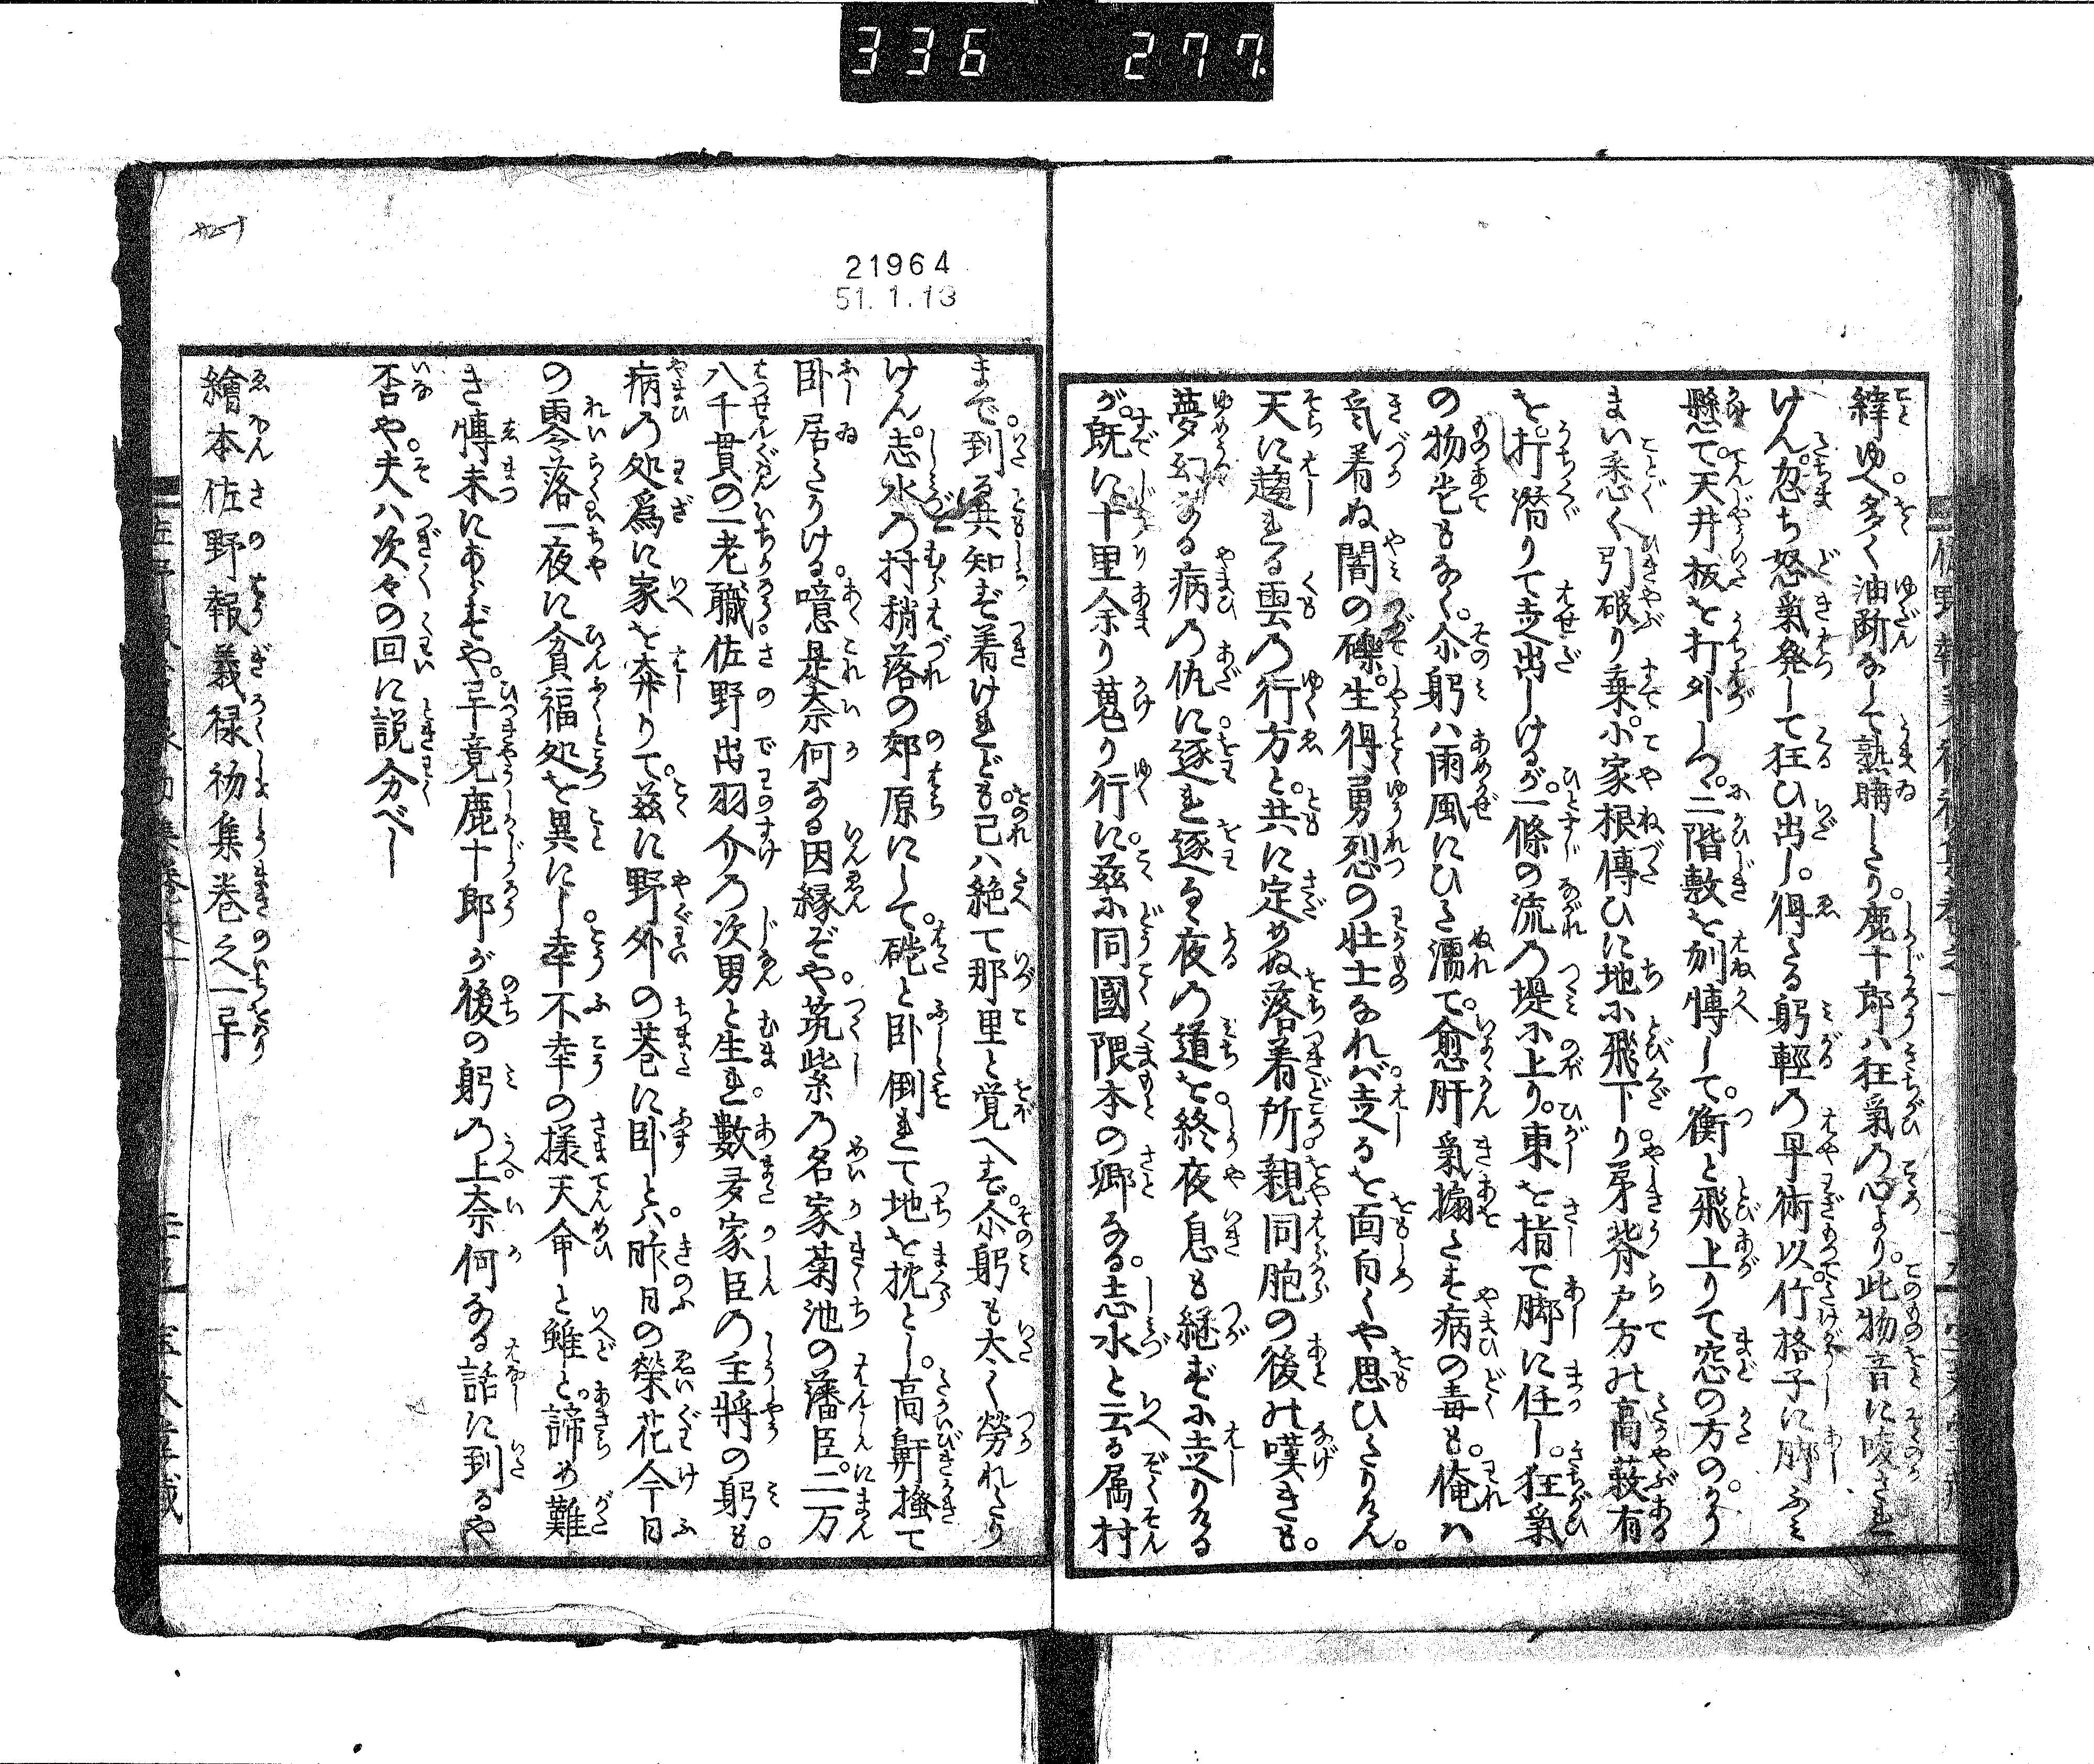 336 277.
緯ゆへ多く油断なして熟睡したり。鹿十郎ハ狂氣の心より。此物音に咳され
けん。忽ち怒氣発して狂ひ出し。得たる躬輕の早術以。竹格子に脚ふみ
懸て。天井板を打外しつ。二階敷を刎愽して。衡と飛上りて窓の方の。かう
まい悉く引破り棄。小家根傳ひに地に飛下り。屋背戸方の高薮有
を。打潜りて走出しけるが。一條の流の堤に上り。東を指て脚に任し。狂氣
の物宛もなく。尒躬ハ雨風にひた濡て。愈肝氣搧たる病の毒も。俺ハ
気着ぬ闇の礫。生得勇烈の壮士なれバ。走るを面白くや思ひたりけん。
天に趨れる雲の行方と。共に定めぬ落着所。親同胞の後の嘆きも。
夢幻なる病の仇に。逐れ逐るゝ夜の道を。終夜息も継ずに走りける
が。既に十里余り蒐り行に。茲に同國隈本の郷なる。志水と云る属村
21964
51.1.13
まで。到る共知ず着けれども。己ハ絶て那里と覚へず。尒躬も太く勞れたり
けん。志水の村稍落の郊原にして。磋と卧倒れて地を枕とし。高鼾搔て
卧居たりける。噫是奈何なる因縁ぞや。筑紫の名家菊池の藩臣。二万
八千貫の一老職。佐野出羽介の次男と生れ。數多家臣の主將の躬も。
病の処爲に家を奔りて。茲に野外の巷に卧とハ。昨日の榮花今日
の零落。一夜に貧福処を異にし。幸不幸の様天命と雖ど。諦め難
き愽末にあらずや。畢竟鹿十郎が後の躬の上。奈何なる話に到るや
否や。夫ハ次々の回に説分べし
繪本佐野報義禄初集巻之一畢